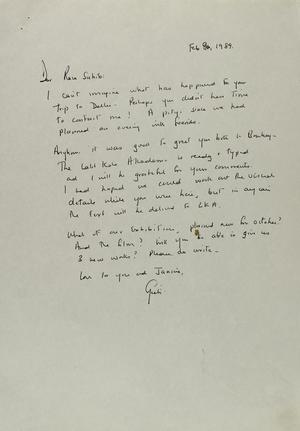 Feb 8, 1989.
Dear Raza Sahib:
I can't imagine what has happened to your
trip to Delhi. Perhaps you didn't have time
to contact me! A pity, since we had
planned an evening with friends.
Anyhow it was good to greet you both in Bombay.
The Lalit Kala Akademi is ready & typed
and I will be grateful for your comments.
I had hoped we could work out the visual
details while you were here, but in any case
the text will be delivered to LKA.
What of our Exhibition, planned now for October?
And the film? Will you be able to give us
8 new works? Please do write.
Love to you and Janine,
Geeti